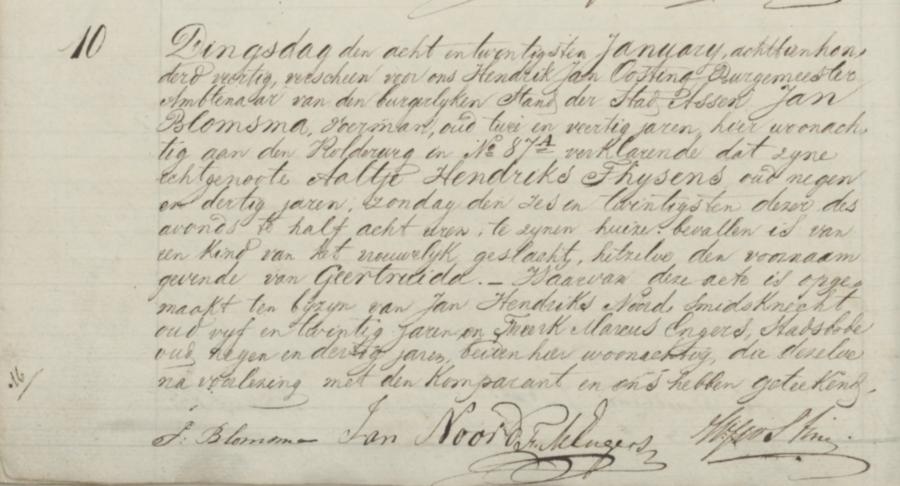 10
Dingsdag den acht en twintigsten January, achttienhon,
derd veertig, verscheen voor ons Hendrik Jan Oosting Burgemeester
Ambtenaar van den burgerlyken Stand der Stad Assen Jan
Blomsma, Voerman, oud twee en veertig jaren, hier woonach,
tig aan den Kolderweg in No 87A verklarende dat zyne
echtgenoote Aaltje Hendriks Thysens, oud negen
en dertig jaren, Zondag den zes en twintigsten dezer des
avonds te half acht uren, te zynen huize bevallen is van
een kind van het vrouwelyk geslacht, hetzelve den voornaam
gevende van Geertruida. – Waarvan deze acte is opge,
maakt ten byzyn van Jan Hendriks Noord, Smidsknecht
oud vyf en twintig jaren, en Freerk Marcus Engers, Stadsbode
oud negen en dertig jaren, beiden hier woonachtig, die dezelve
na voorlezing met den komparant en ons hebben geteekend.
16/
J. Blomsma Jan Noord Fr. M. Engers HJOosting.